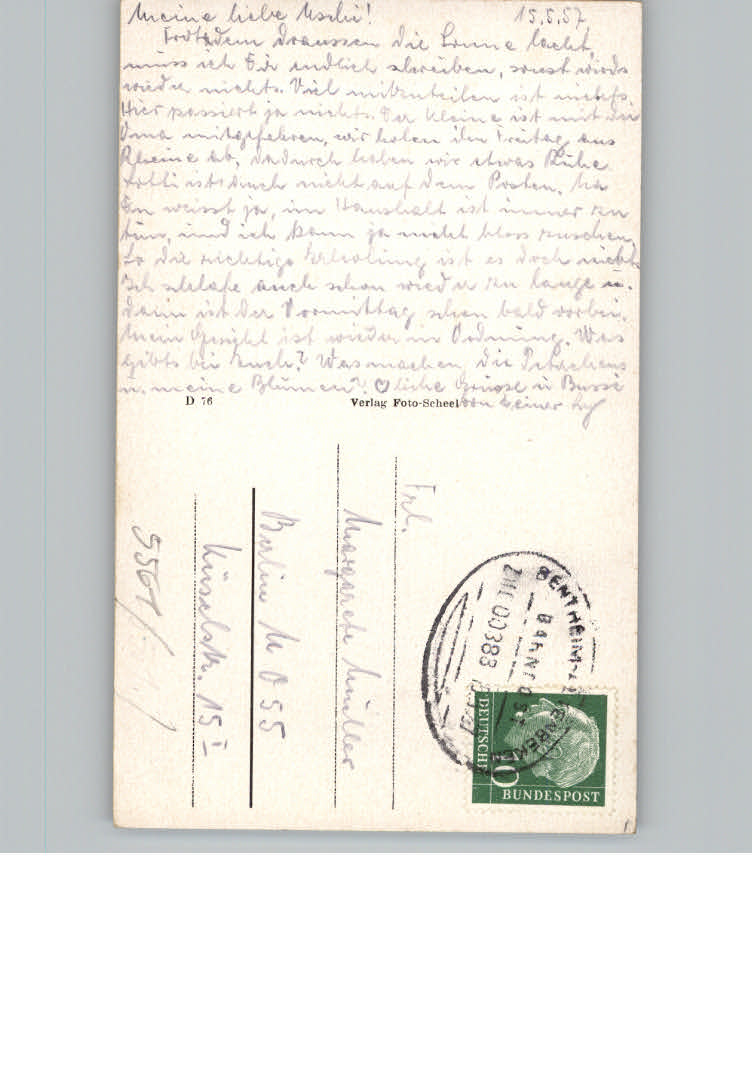 Meine liebe Uschi! 15.5.57.
Trotzdem draussen die Sonne lacht,
muss ich Dir endlich schreiben, sonst wirds
wieder nichts. Viel mitzuteilen ist nichts.
Hier passiert ja nichts. Der Kleine ist mit der
Oma mitgefahren, wir holen ihn Freitag aus
Rheine ab, dadurch haben wir etwas Ruhe.
ist auch nicht auf dem Posten. Na
Du weisst ja, im Haushalt ist immer zu
tun, und ich kann ja nicht bloss zusehen.
So die richtige Erholung ist es doch nicht.
Ich schlafe auch schon wieder zu lange u.
dann ist der Vormittag schon bald vorbei.
Mein Gesicht ist wieder in Ordnung. Was
gibts bei Euch? Was machen die
u. meine Blumen? ♡liche Grüsse u Busse
von Deiner
D 76 Verlag Foto-Scheel
Frl.
Margarete Müller
Berlin N O 55
15 I
5561/
BENTHEIM-
BAHNPOST
ZUG 00388
DEUTSCHE
BUNDESPOST
10